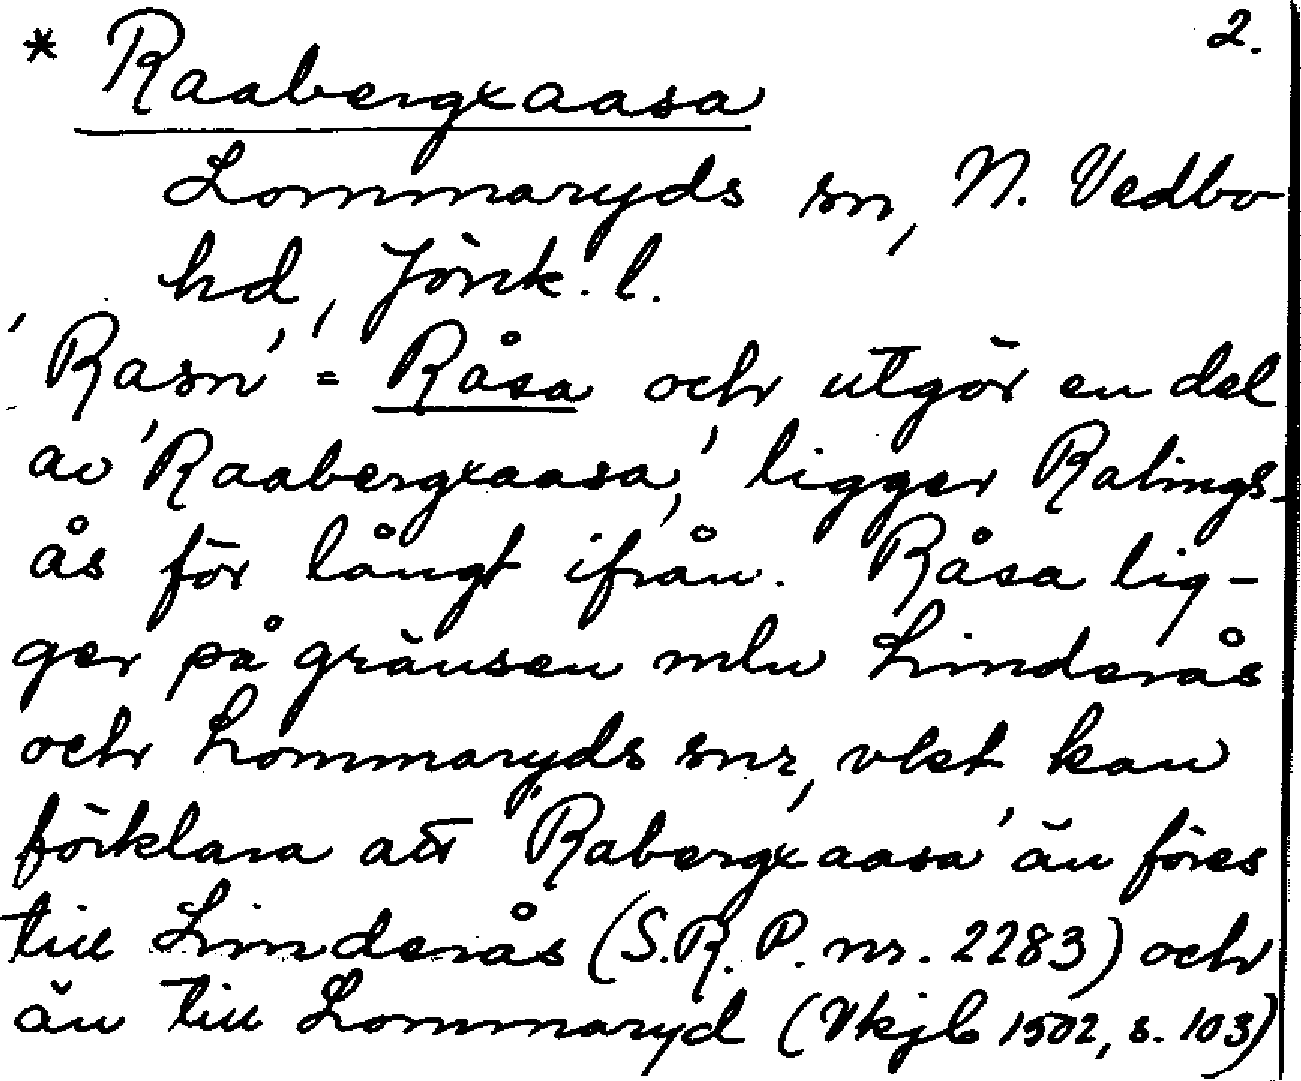 2.
* Raabergxaasa
Lommaryds sn, N. Vedbo
hd, Jönk. l.
'Rasn' = Råsa och utgör en del
av 'Raabergxaasa', ligger Ralings-
ås för långt ifrån. Råsa lig-
ger på gränsen mln Linderås
och Lommaryds snr, vlket kan
förklara att 'Rabergxaasa' än föres
till Linderås (S.R.P. nr. 2283) och
än till Lommaryd (Vkjb 1502, s. 103)